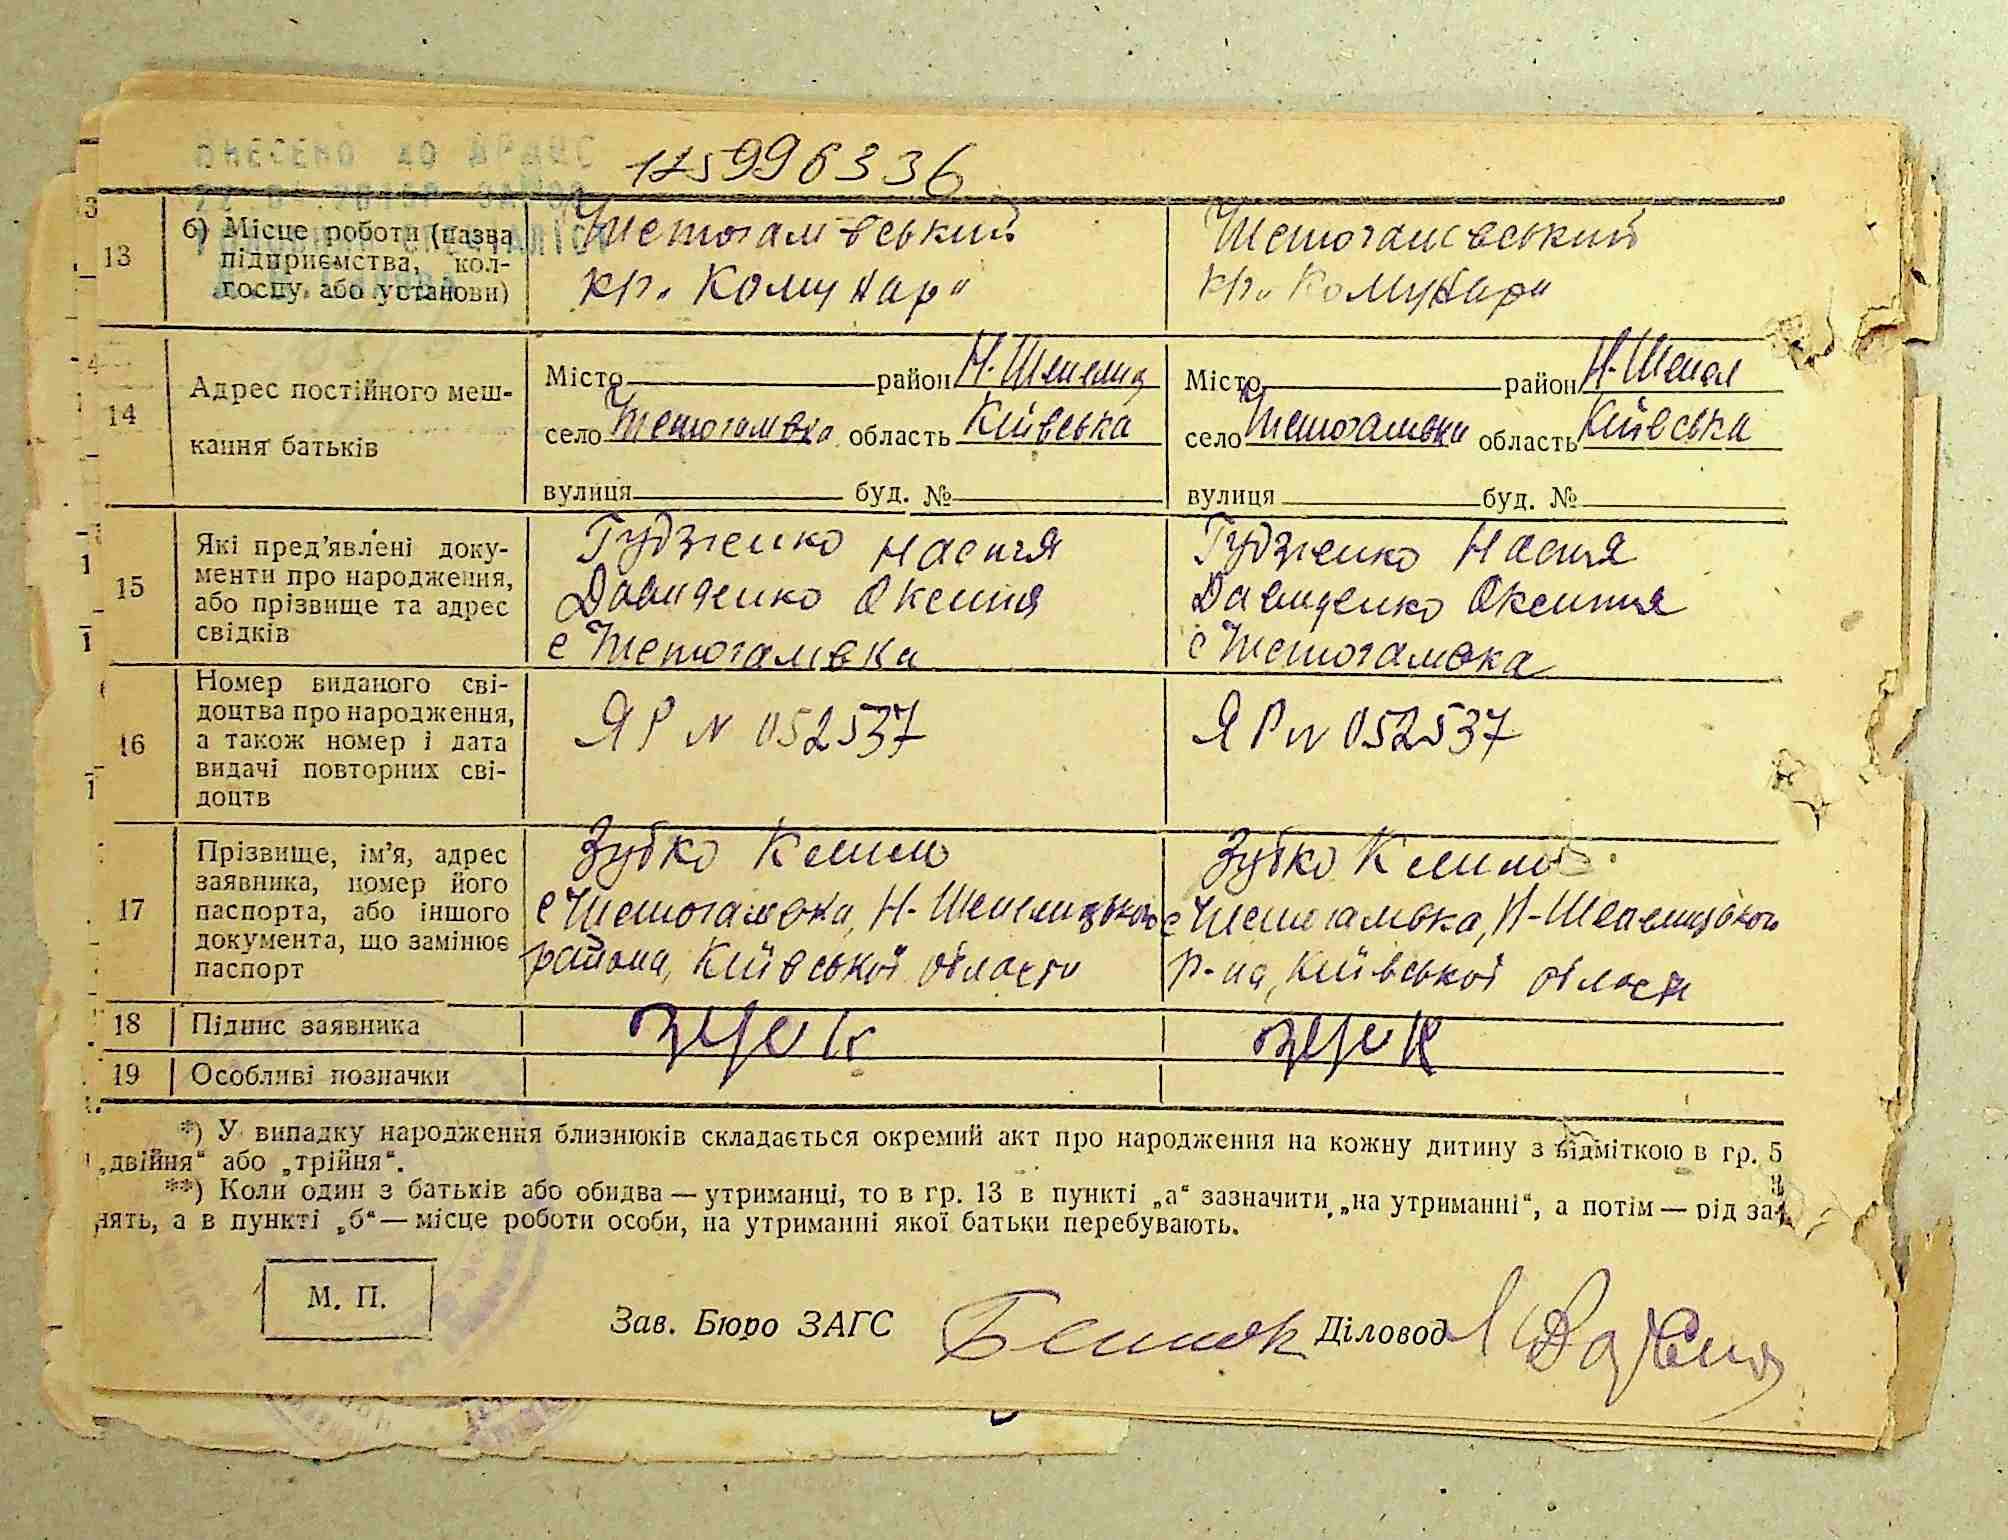 175996336
13 б) Місце роботи (назва підприємства, колгоспу, або установи)
кр. „Комунар"
кр. „Комунар"
14 Адрес постійного мешкання батьків
Місто район Н-Шепелиц
село область Київська
вулиця буд. №
Місто район Н-Шепел
село область Київська
вулиця буд. №
15 Які пред'явлені документи про народження, або прізвище та адрес свідків
Гудзенко Настя
Давиденко Оксення
с
Гудзенко Настя
Давиденко Оксення
с
16 Номер виданого свідоцтва про народження, а також номер і дата видачі повторних свідоцтв
ЯР N 052537
ЯР N 052537
17 Прізвище, ім'я, адрес заявника, номер його паспорта, або іншого документа, що замінює паспорт
Зубко Клим
с Н-Шепелицького
района, Київської области
Зубко Клим
с Н-Шепелицького
р-на, Київської области
18 Підпис заявника
19 Особливі позначки
*) У випадку народження близнюків складається окремий акт про народження на кожну дитину з відміткою в гр. 5
„двійня“ або „трійня“.
**) Коли один з батьків або обидва — утриманці, то в гр. 13 в пункті „а“ зазначити „на утриманні“, а потім — рід за-
нять, а в пункті „б“ — місце роботи особи, на утриманні якої батьки перебувають.
М. П.
Зав. Бюро ЗАГС Діловод